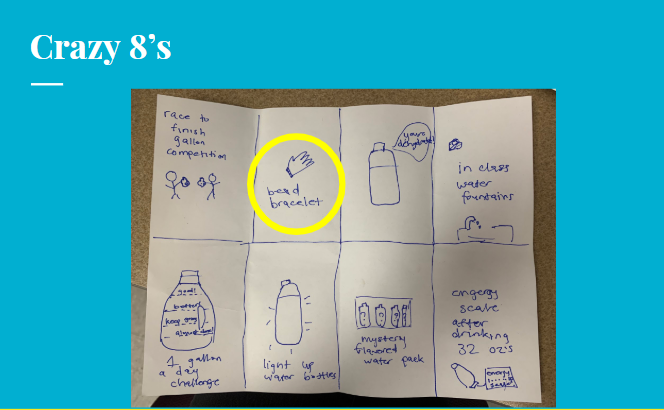 Crazy 8's
race to
finish
gallon
competition
bead
bracelet
your
dehydrated!
in class
water
fountains
goal!
better
keep going
almost
1 gallon
a day
challenge
light up
water bottles
? ? ?
mystery
flavored
water pack
engergy
scale
after
drinking
32 oz's
energy
scale